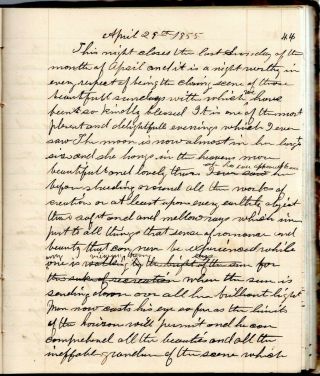 April 29th 1855
44
This night closes the last Sunday of the
month of April and it is a night worthy in
every respect of being the closing scene of those
beautifull sundays with which we have
been so kindly blessed It is one of the most
plesent and delightfull evenings which I ever
saw The moon is now almost in her
and she hangs in the heavens more
beautifull and lovely than I ever saw her
before shedding around all the works of
creation or at least upon every earthly object
that soft and and mellow rays which im
part to all things that sense of romance and
beauty that can never be experienced while
one is by the light of the sun for
the sake of recreation when the sun is
sending down over all his brilliant light
Man now casts his eye so far as the limits
of the horizon will permit and he can
comprehend all the beauties and all the
ineffable grandeur of the scene which